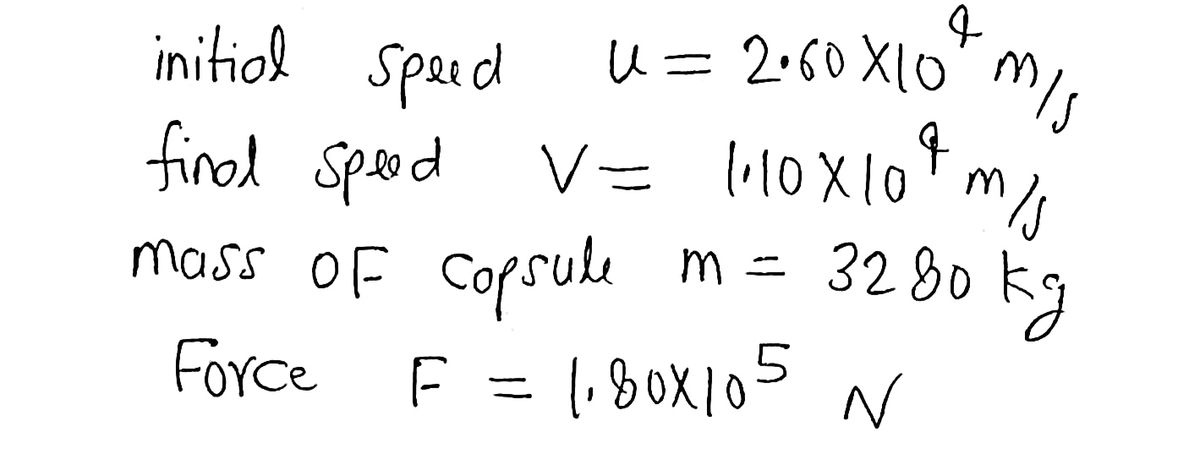 initial speed u = 2.60 X10⁴ m/s
final speed V = 1.10 X 10⁴ m/s
mass OF Capsule m = 3280 kg
Force F = 1.80X10⁵ N